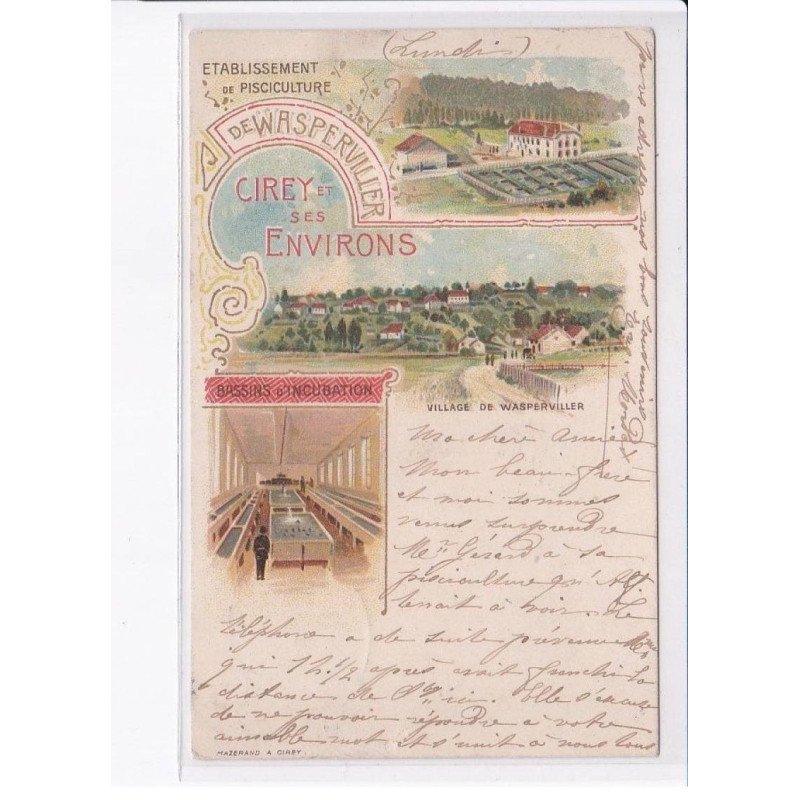 (Lundi)
ETABLISSEMENT
DE PISCICULTURE
DE WASPERVILLER
CIREY ET
SES
ENVIRONS
VILLAGE DE WASPERVILLER
BASSINS D'INCUBATION
Ma chère Amie
Mon beau-frère
et moi sommes
venus surprendre
Mr Gérard à sa
pisciculture qu'Alf
tenait à voir. Le
téléphone a de suite prévenu Mme
qui 1 h 1/2 après avait franchi la
distance de ici. Elle s'excuse
de ne pouvoir répondre à votre
aimable mot et s'unit à nous tous
MAZERAND A CIREY